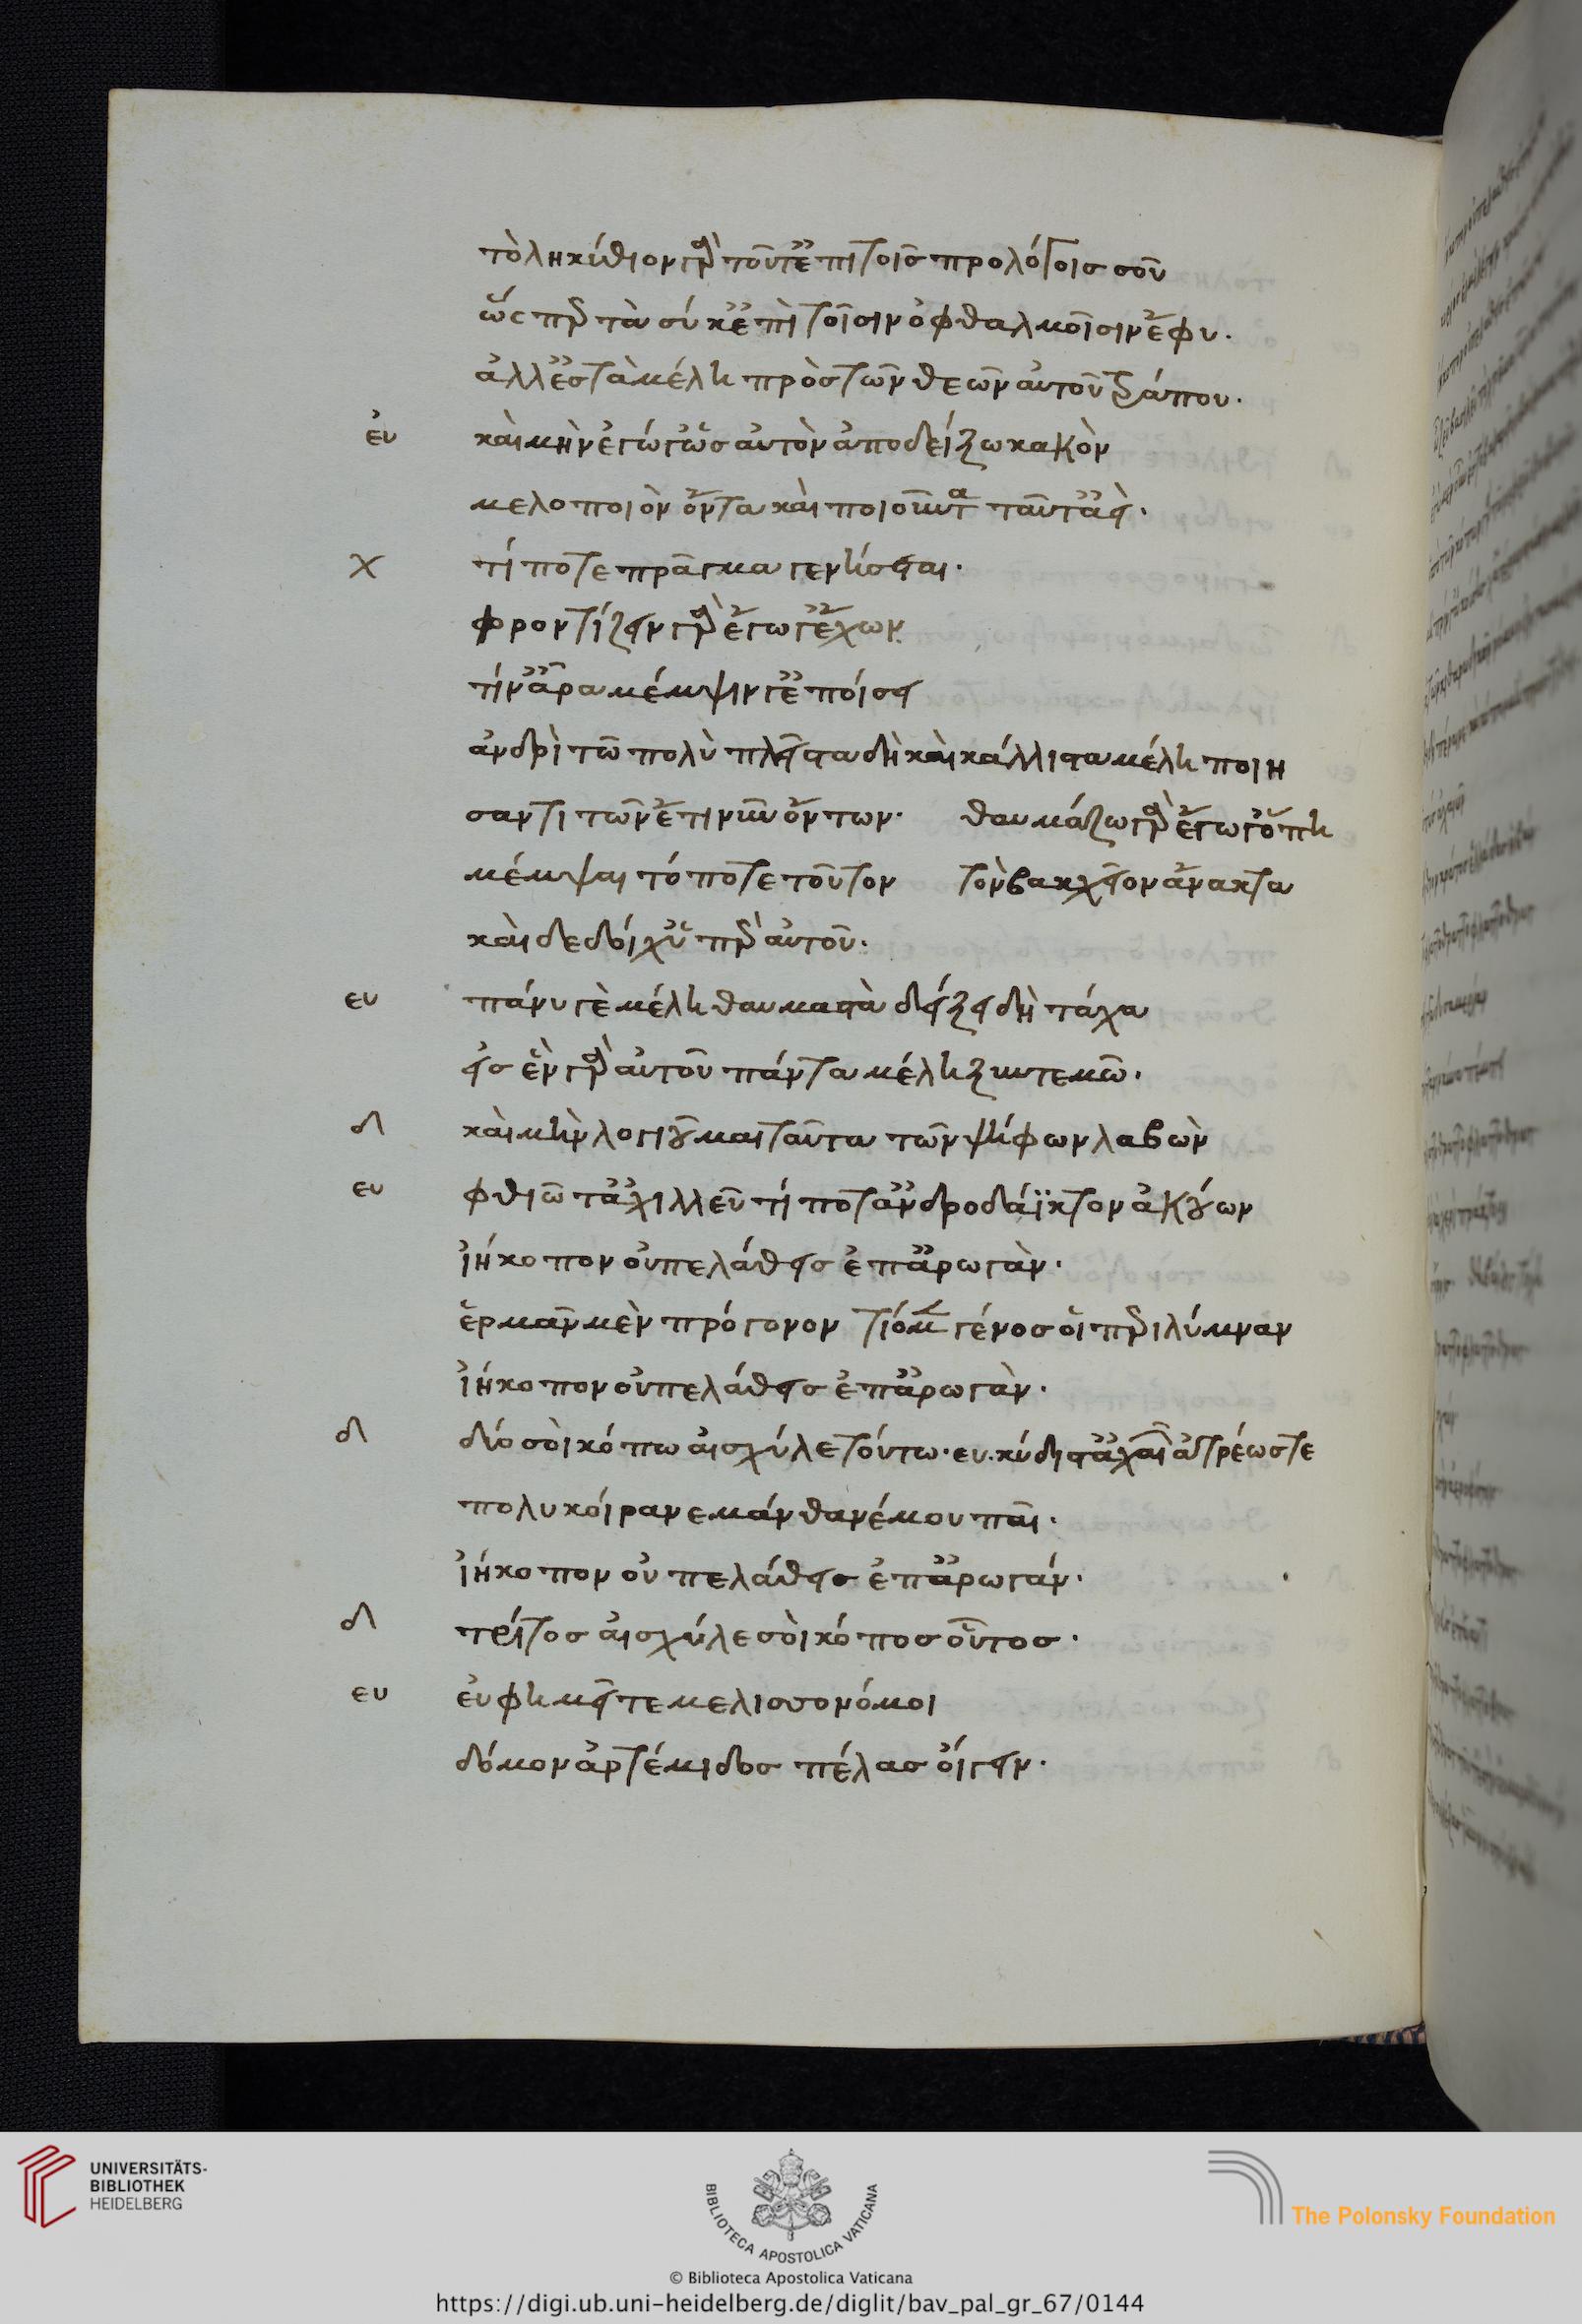 τὸ ληκύθιον γὰρ τοῦτ' ἐπὶ τοῖς προλόγοις σοῦ
ὥσπερ τὰ σύκ' ἐπὶ τοῖσιν ὀφθαλμοῖσιν ἔφυ.
ἀλλ' ἐς τὰ μέλη πρὸς τῶν θεῶν αὐτοῦ τράπου.
ἐυ καὶ μὴν ἐγώ γ' ὡς αὐτὸν ἀποδείξω κακὸν
μελοποιὸν ὄντα καὶ ποιοῦντα ταῦτ' ἀεὶ.
χ τί ποτε πρᾶγμα γενήσεται.
φροντίζειν γὰρ ἔγωγ' ἔχων.
τίν' ἄρα μέμψιν γ' ἐποίσει
ἀνδρὶ τῶ πολὺ πλεῖστα δὴ καὶ κάλλιστα μέλη ποιη
σαντι τῶν ἔτι νῦν ὄντων. θαυμάζω γὰρ ἔγωγ' ὅπη
μέμψαιτό ποτε τοῦτον τὸν βακχεῖον ἄνακτα
καὶ δέδοιχ' ὑπὲρ αὐτοῦ.
ευ πάνυ γὲ μέλη θαυμαστὰ δείξει δὴ τάχα
εἰς ἓν γὰρ αὐτοῦ πάντα μέλη ξυντεμῶ.
δι καὶ μὴν λογιοῦμαι ταῦτα τῶν ψήφων λαβὼν
ευ φθιῶτ' ἀχιλλεῦ τί ποτ' ἀνδροδάϊκτον ἀκούων
ἰήκοπον οὐ πελάθεις ἐπ' ἀρωγὰν.
ἑρμᾶν μὲν πρόγονον τίομεν γένος οἱ περὶ λύμναν
ἰήκοπον οὐ πελάθεις ἐπ' ἀρωγὰν.
δι δύο σοὶ κόπω αἰσχύλε τούτω. ευ. κύδιστ' ἀχαιῶν ἀτρέως τε
πολυκοίρανε μάνθανέ μου παῖ.
ἰήκοπον οὐ πελάθεις ἐπ' ἀρωγάν.
δι τρίτος αἰσχύλε σοὶ κόπος οὗτος.
ευ εὐφημεῖτε μελισσονόμοι
δόμον ἀρτέμιδος πέλας οἴγειν.
UNIVERSITÄTS-
BIBLIOTHEK
HEIDELBERG
BIBLIOTECA APOSTOLICA VATICANA
The Polonsky Foundation
© Biblioteca Apostolica Vaticana
https://digi.ub.uni-heidelberg.de/diglit/bav_pal_gr_67/0144